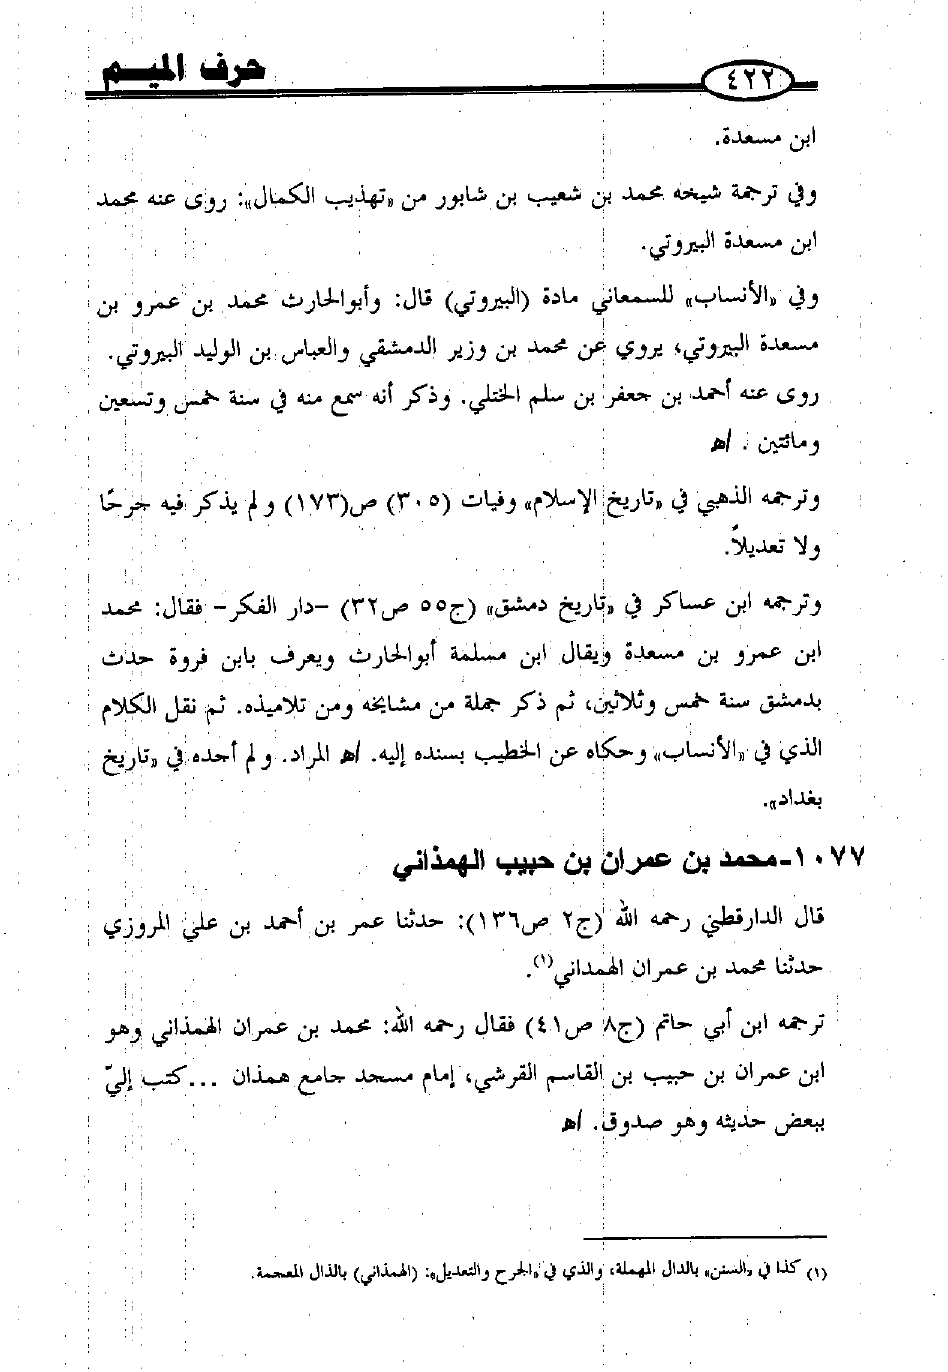 ٤٢٢
حرف الميم
ابن مسعدة.
وفي ترجمة شيخه محمد بن شعيب بن شابور من «تهذيب الكمال»: روى عنه محمد
ابن مسعدة البيروتي.
وفي «الأنساب» للسمعاني مادة (البيروتي) قال: وأبوالحارث محمد بن عمرو بن
مسعدة البيروتي، يروي عن محمد بن وزير الدمشقي والعباس بن الوليد البيروتي.
روى عنه أحمد بن جعفر بن سلم الختلي. وذكر أنه سمع منه في سنة خمس وتسعين
ومائتين . اﻫ
وترجمه الذهبي في «تاريخ الإسلام» وفيات (٣٠٥) ص(١٧٣) ولم يذكر فيه جرحًا
ولا تعديلاً.
وترجمه ابن عساكر في «تاريخ دمشق» (ج٥٥ ص٣٢) -دار الفكر- فقال: محمد
ابن عمرو بن مسعدة ويقال ابن مسلمة أبوالحارث ويعرف بابن فروة حدث
بدمشق سنة خمس وثلاثين، ثم ذكر جملة من مشايخه ومن تلاميذه. ثم نقل الكلام
الذي في «الأنساب» وحكاه عن الخطيب بسنده إليه. اﻫ المراد. ولم أجده في «تاريخ
بغداد».
١٠٧٧-محمد بن عمران بن حبيب الهمذاني
قال الدارقطني رحمه الله (ج٢ ص١٣٦): حدثنا عمر بن أحمد بن علي المروزي
حدثنا محمد بن عمران الهمداني(١).
ترجمه ابن أبي حاتم (ج٨ ص٤١) فقال رحمه الله: محمد بن عمران الهمذاني وهو
ابن عمران بن حبيب بن القاسم القرشي، إمام مسجد جامع همذان ...كتب إليّ
ببعض حديثه وهو صدوق. اﻫ
(١) كذا في «السنن» بالدال المهملة، والذي في «الجرح والتعديل»: (الهمذاني) بالذال المعجمة.